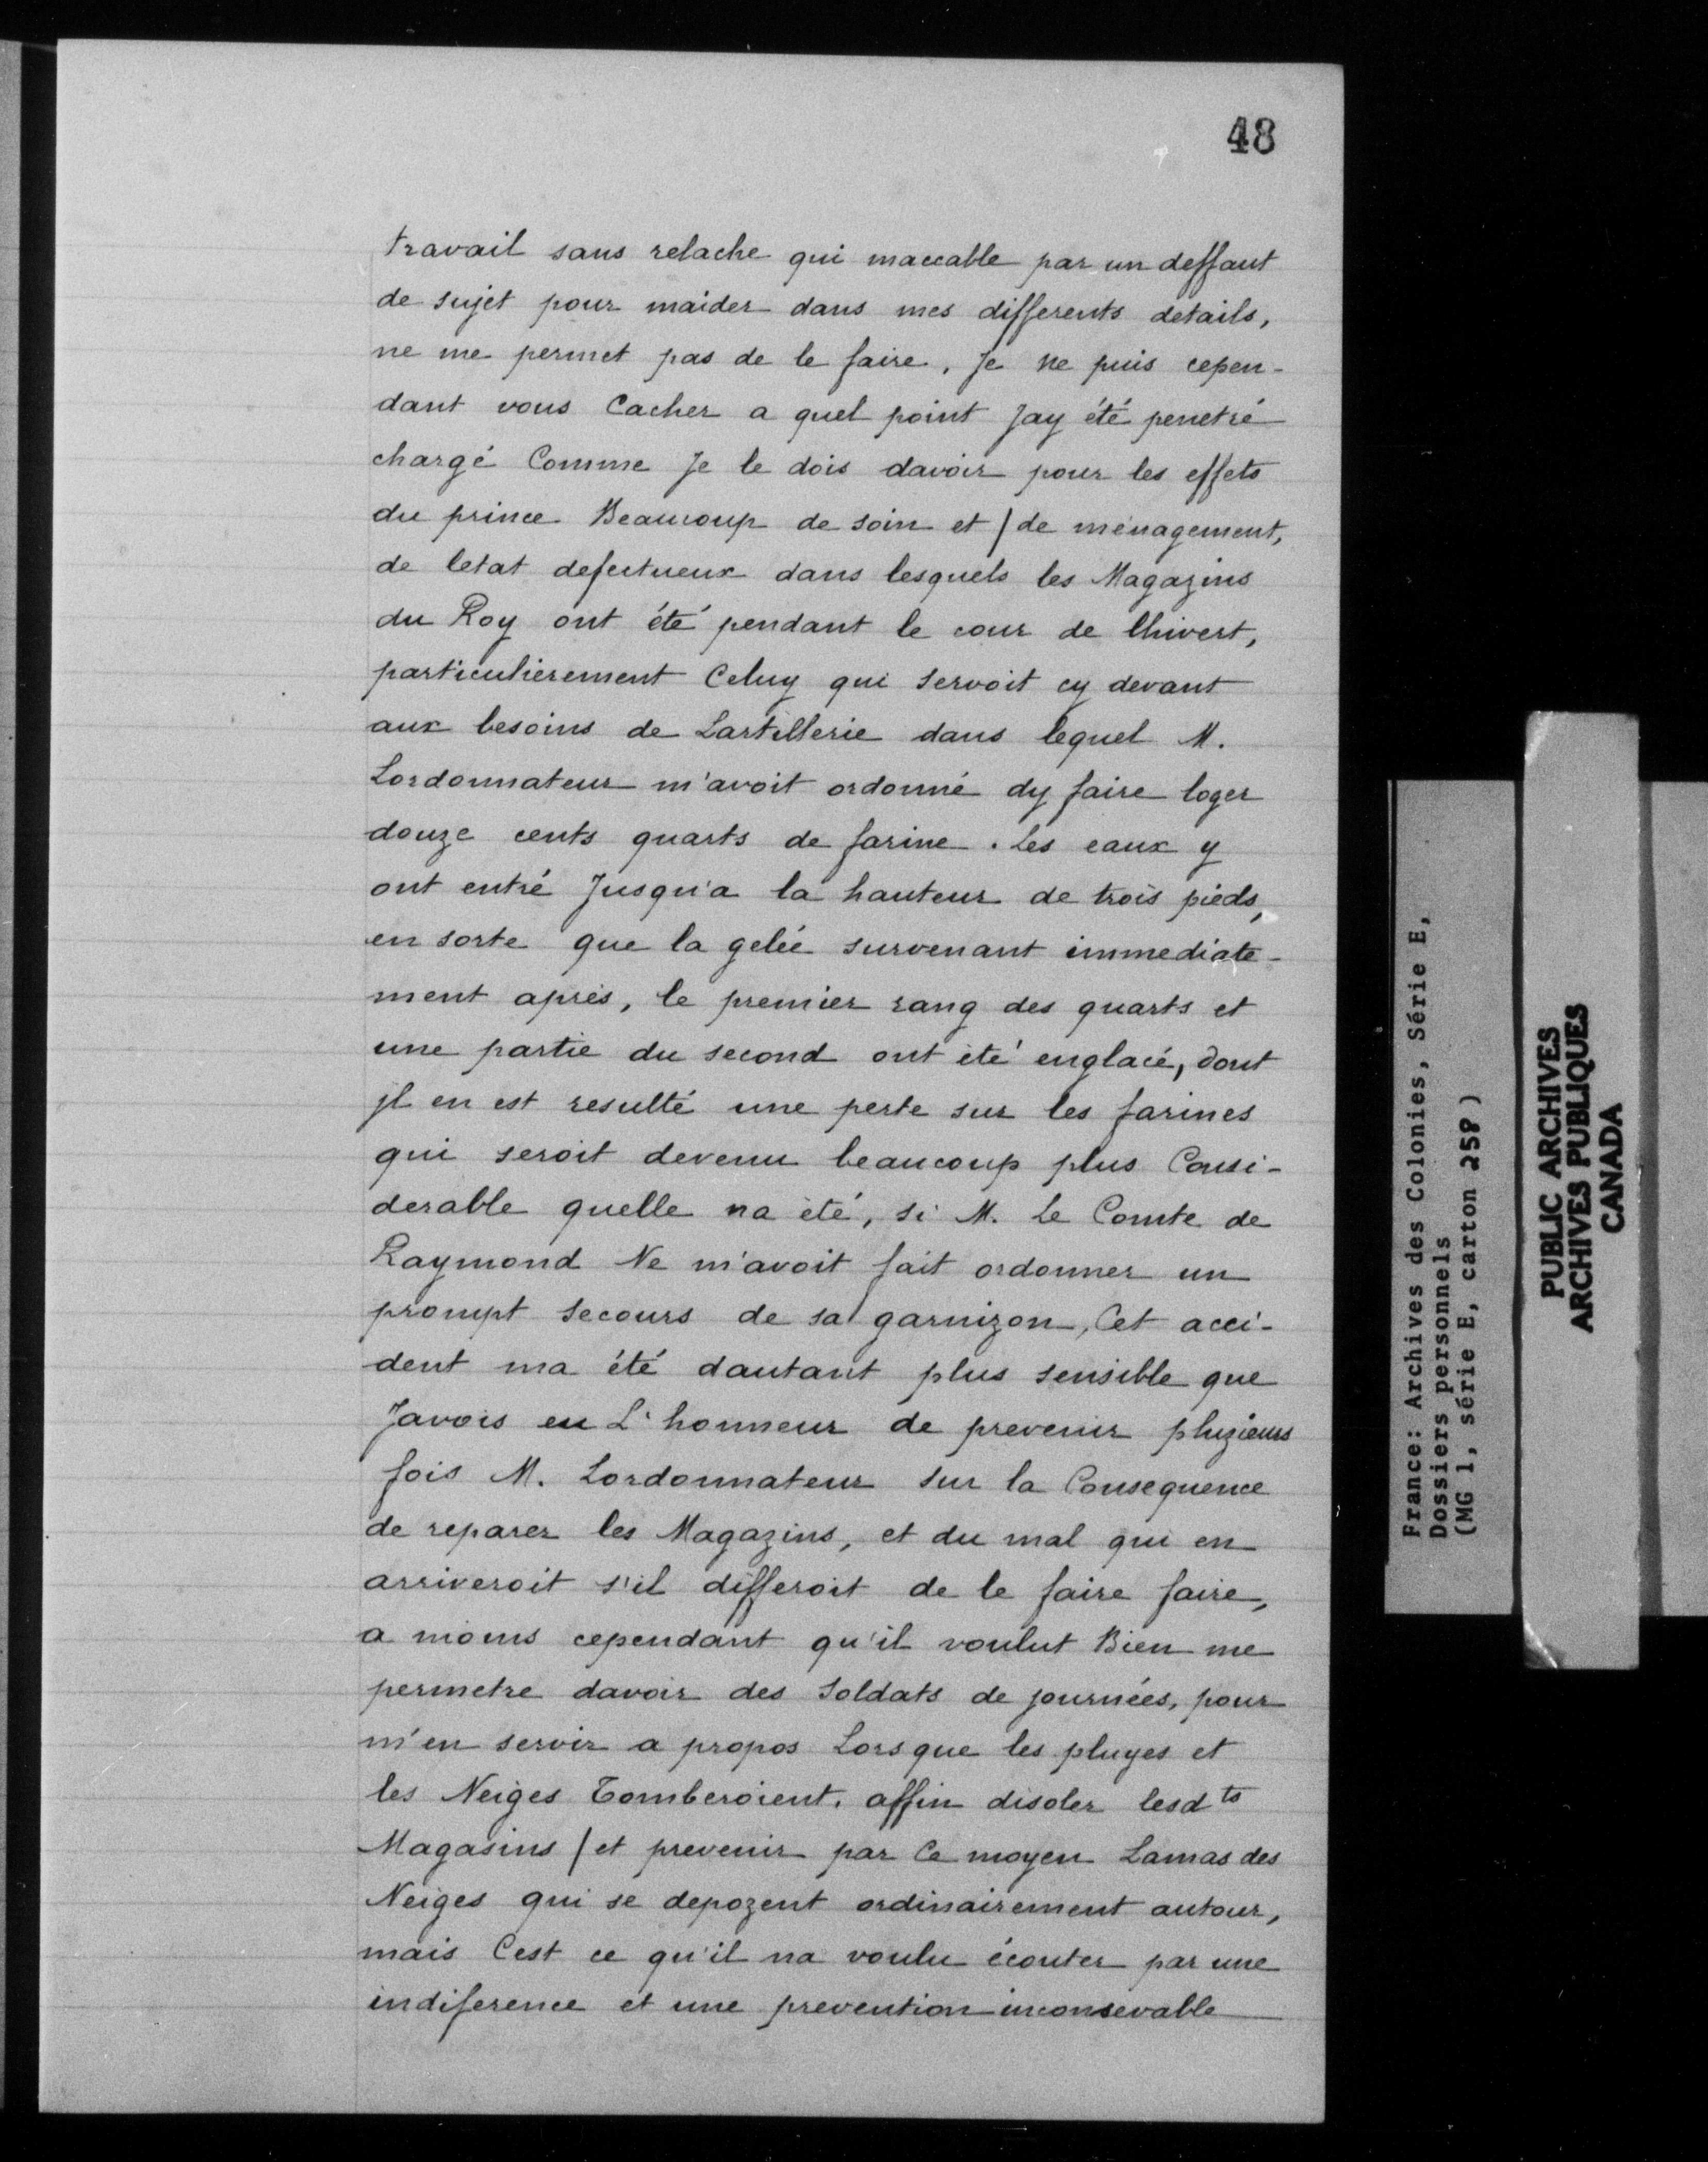 48
travail sans relache qui maccable par un deffaut
de sujet pour maider dans mes differents details,
ne me permet pas de le faire, Je ne puis cepen-
dant vous Cacher a quel point Jay été penetré
chargé Comme Je le dois davoir pour les effets
du prince Beaucoup de soin et / de ménagement,
de letat defectueux dans lesquels les Magazins
du Roy ont été pendant le cour de lhivert,
particulierement Celuy qui servoit cy devant
aux besoins de Lartillerie dans lequel M.
Lordonnateur m'avoit ordonné dy faire loger
douze cents quarts de farine. Les eaux y
ont entré Jusqu'a la hauteur de trois pieds,
en sorte que la gelée survenant immediate-
ment après, le premier rang des quarts et
une partie du second ont été englacé, dont
jl en est resulté une perte sur les farines
qui seroit devenu beaucoup plus Consi-
derable quelle na été, si M. Le Comte de
Raymond Ne m'avoit fait ordonner un
prompt secours de sa garnizon, Cet acci-
dent ma été dautant plus sensible que
Javois eu L'honneur de prevenir pluzieurs
fois M. Lordonnateur sur la Consequence
de reparer les Magazins, et du mal qui en
arriveroit s'il differoit de le faire faire,
a moins cependant qu'il voulut Bien me
permetre davoir des soldats de journées, pour
m'en servir a propos Lorsque les pluyes et
les Neiges Tomberoient. affin disoler lesdts
Magasins / et prevenir par Ce moyen Lamas des
Neiges qui se depozent ordinairement autour,
mais Cest ce qu'il na voulu écouter par une
indiference et une prevention inconsevable
France: Archives des Colonies, Série E,
Dossiers personnels
(MG 1, série E, carton 258)
PUBLIC ARCHIVES
ARCHIVES PUBLIQUES
CANADA